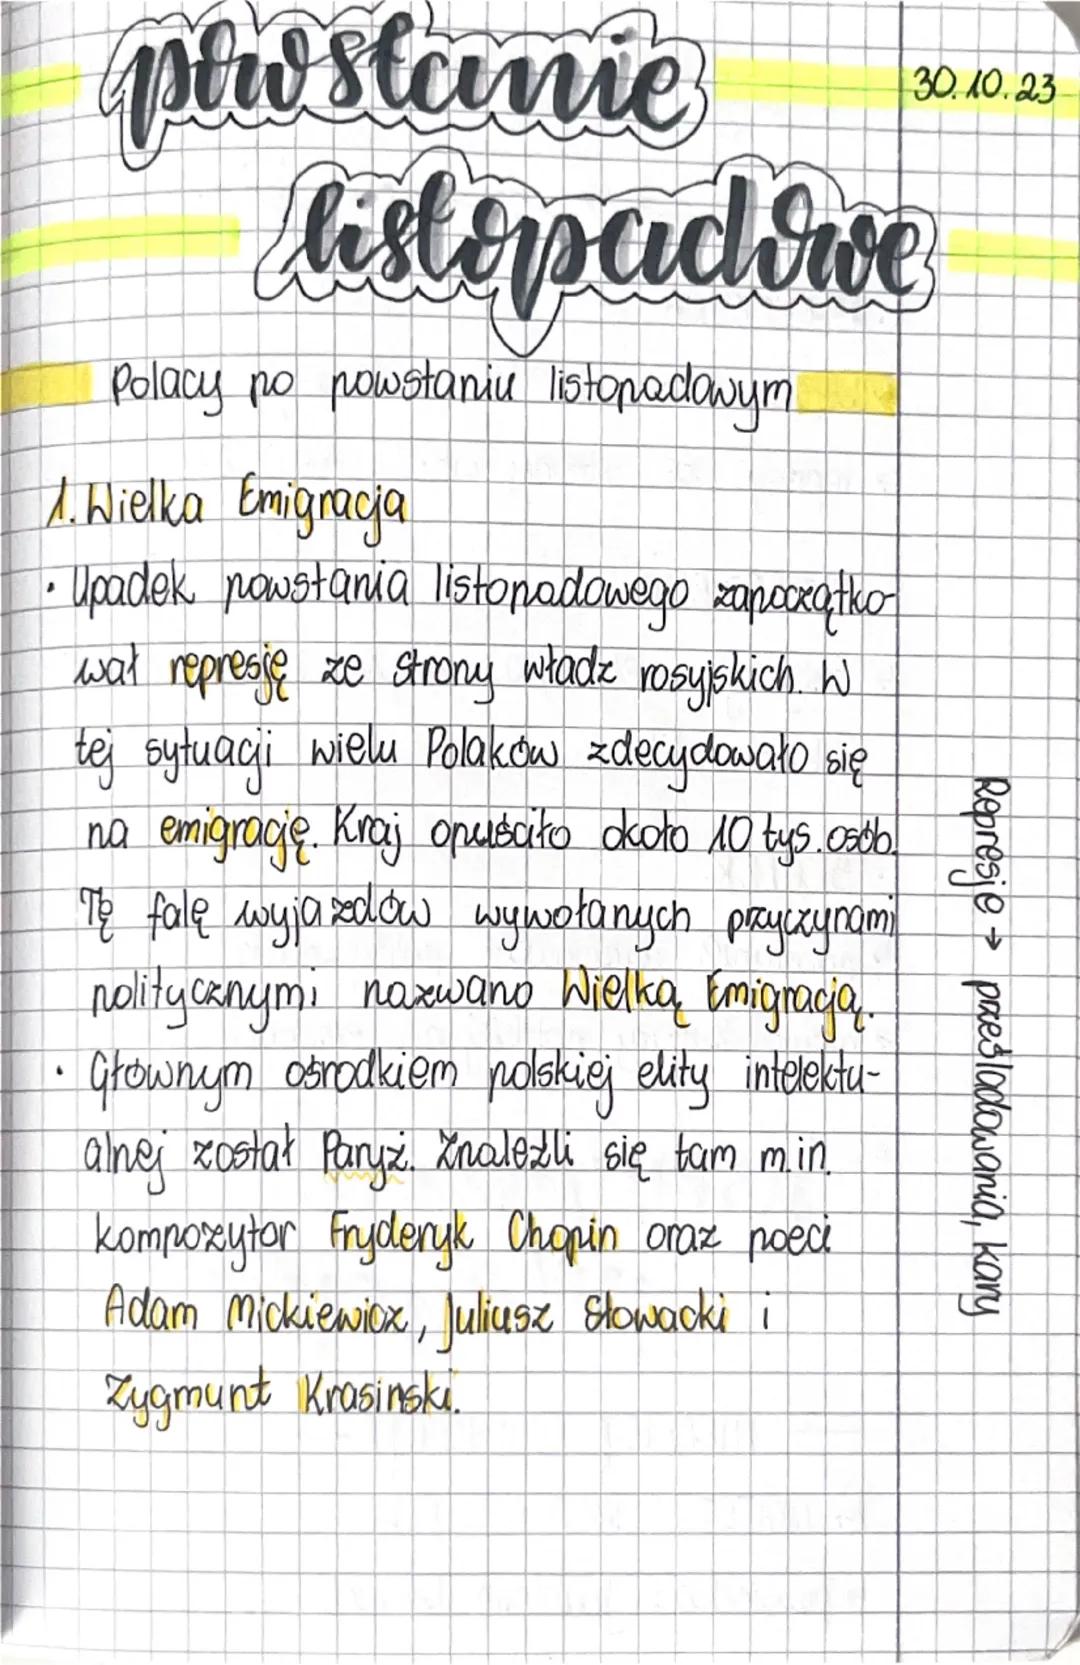 powstanie
30.10.23
listopadowe
Polacy po powstaniu listopadowym
1. Wielka Emigracja
• Upadek powstania listopadowego zapoczątko-
wał represję ze strony władz rosyjskich. W
tej sytuacji wielu Polaków zdecydowało się
na emigrację. Kraj opuściło około 10 tys. osób.
Tę falę wyjazdów wywołanych przyczynami
politycznymi nazwano Wielką Emigracją.
• Głównym ośrodkiem polskiej elity intelektu-
alnej został Paryż. Znaleźli się tam m.in.
kompozytor Fryderyk Chopin oraz poeci
Adam Mickiewicz, Juliusz Słowacki i
Zygmunt Krasiński.
Represje → prześladowania, kary